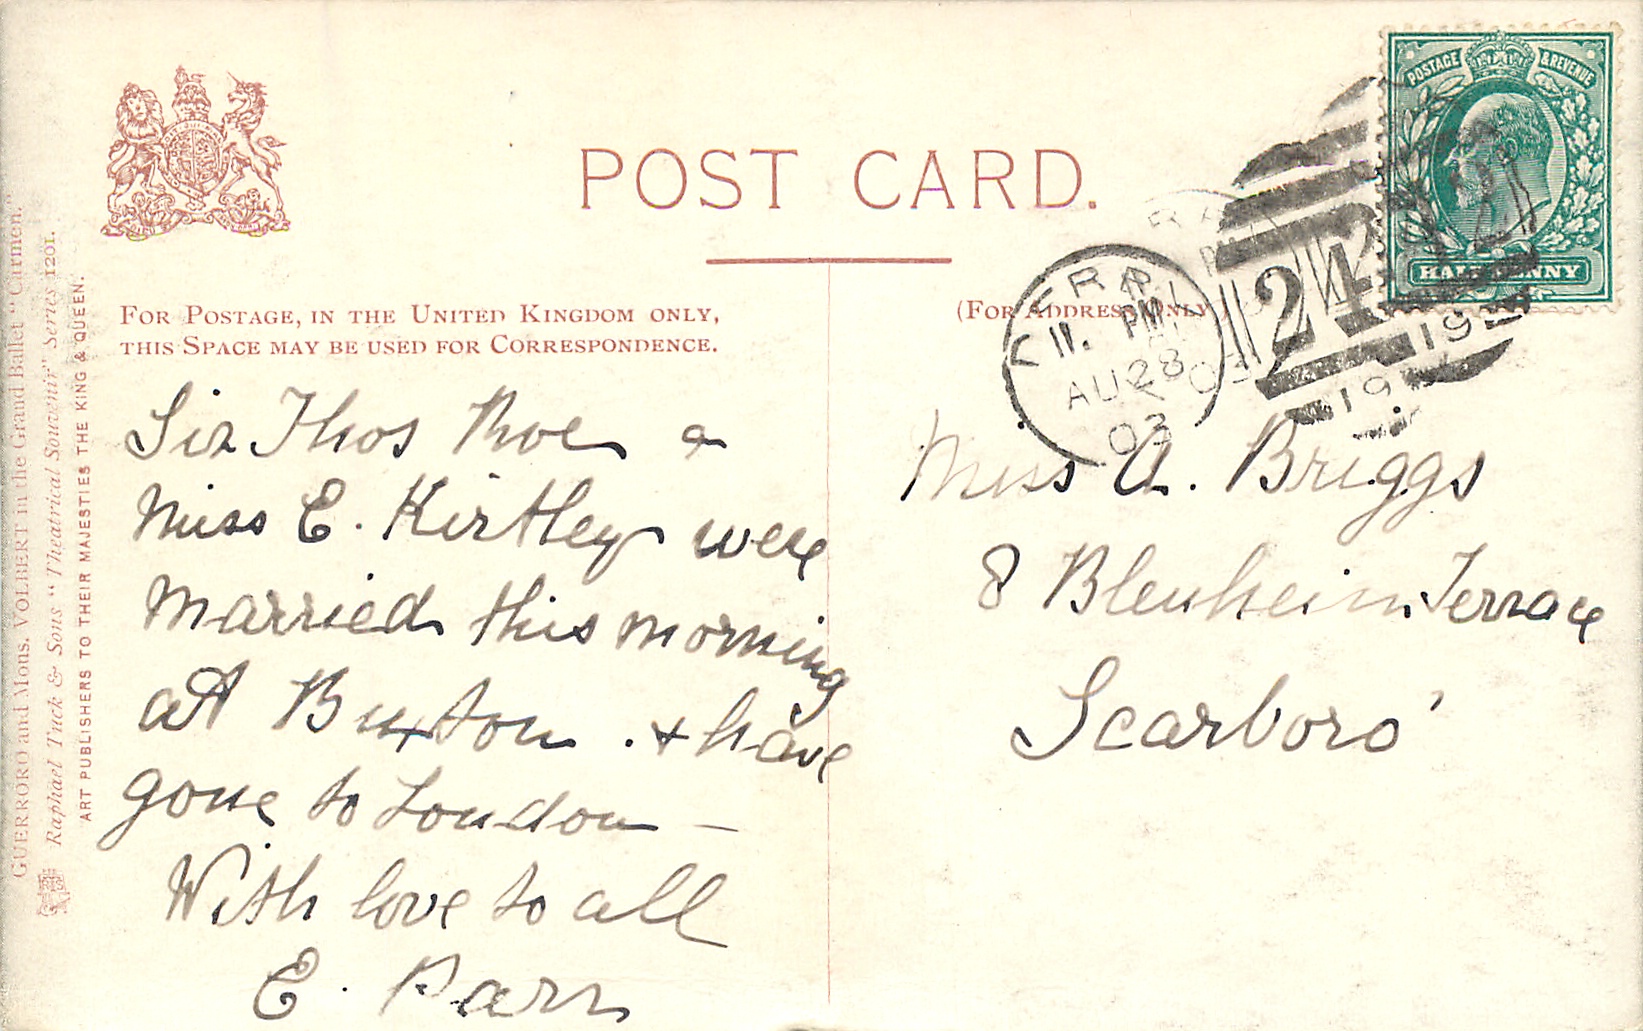 POST CARD.
FOR POSTAGE, IN THE UNITED KINGDOM ONLY,
THIS SPACE MAY BE USED FOR CORRESPONDENCE.
(FOR ADDRESS ONLY)
POSTAGE & REVENUE
HALFPENNY
DERBY
11. PM
AU 28
03
24
Sir Thos Roe &
Miss E. Kirtley were
married this morning
at Buxton. & have
gone to London —
With love to all
E. Parr
Miss A. Briggs
8 Blenheim Terrace
Scarboro'
GUERRORO and Mons. VOLBERT in the Grand Ballet "Carmen."
Raphael Tuck & Sons "Theatrical Souvenir" Series 1201.
ART PUBLISHERS TO THEIR MAJESTIES THE KING & QUEEN.